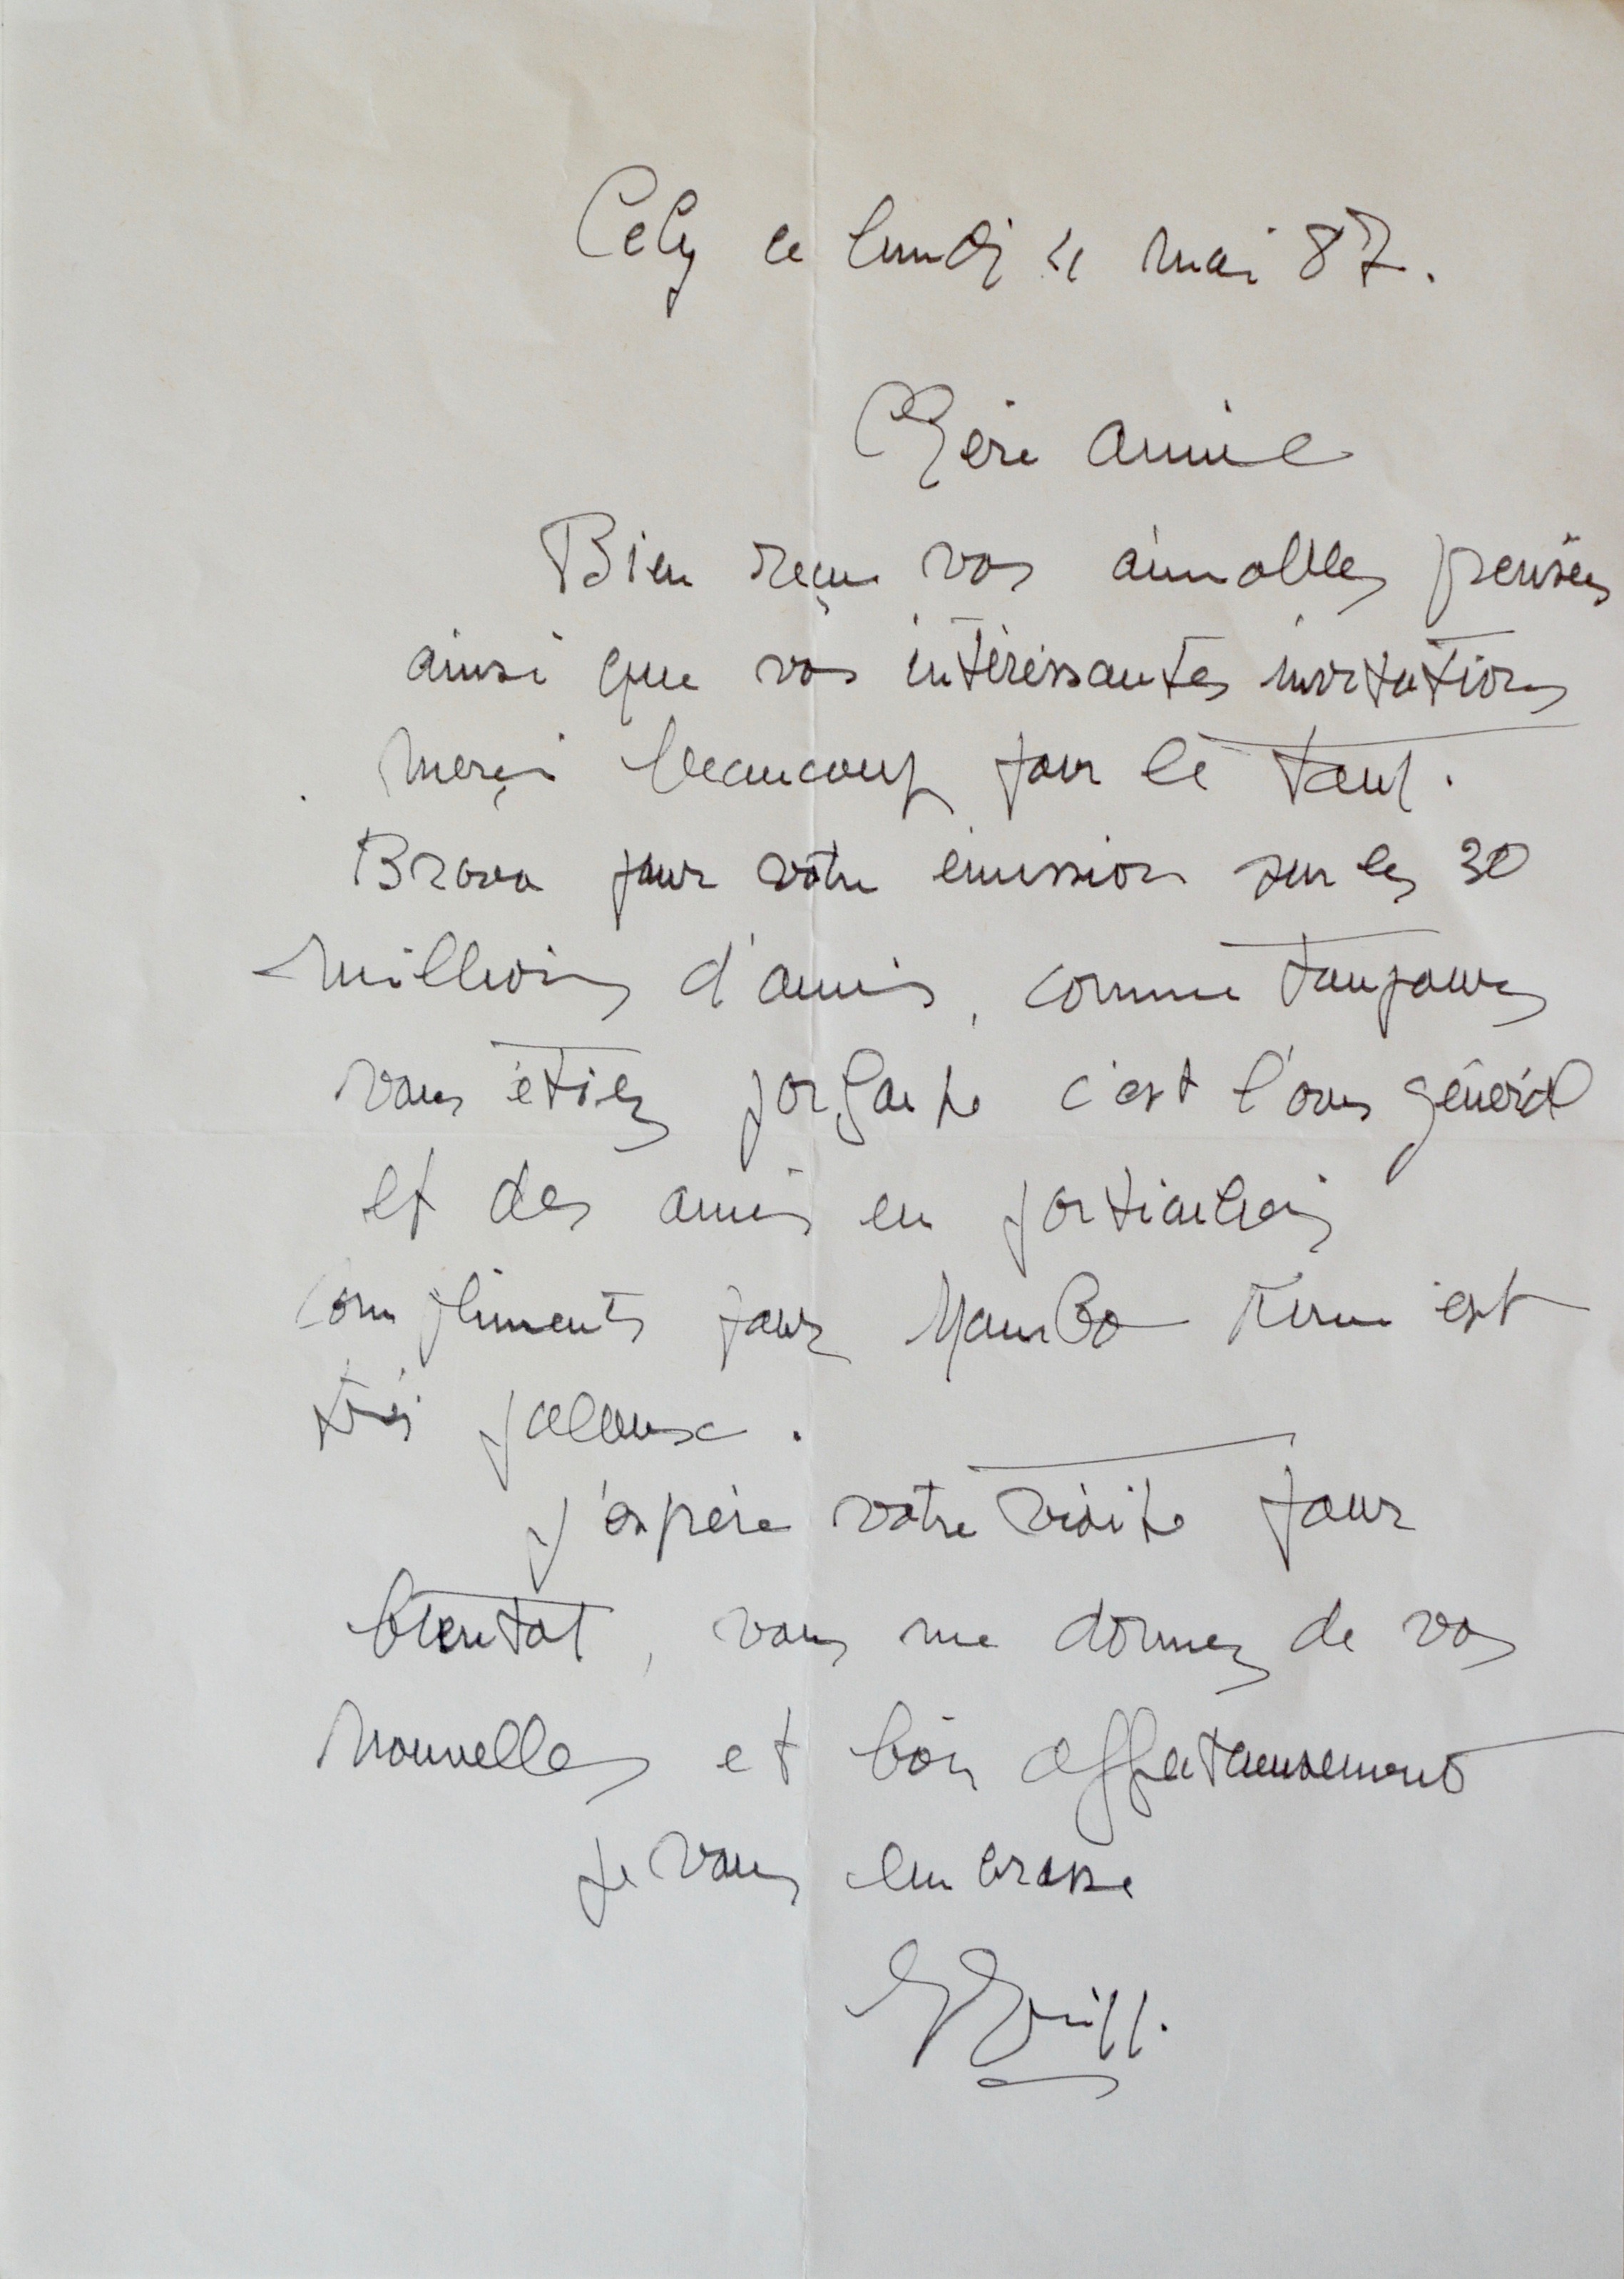 Cély ce lundi 4 mai 87.
Chère amie
Bien reçu vos aimables pensées
ainsi que vos intéressantes invitations
merçi beaucoup pour le tout.
Bravo pour votre émission sur les 30
millions d'amis, comme toujours
vous étiez parfaite c'est l'avis général
et des amis en particulier
Compliments pour est
très jalouse.
j'espère votre visite pour
bientot, vous me donnez de vos
nouvelles et bien affectueusement
je vous embrasse